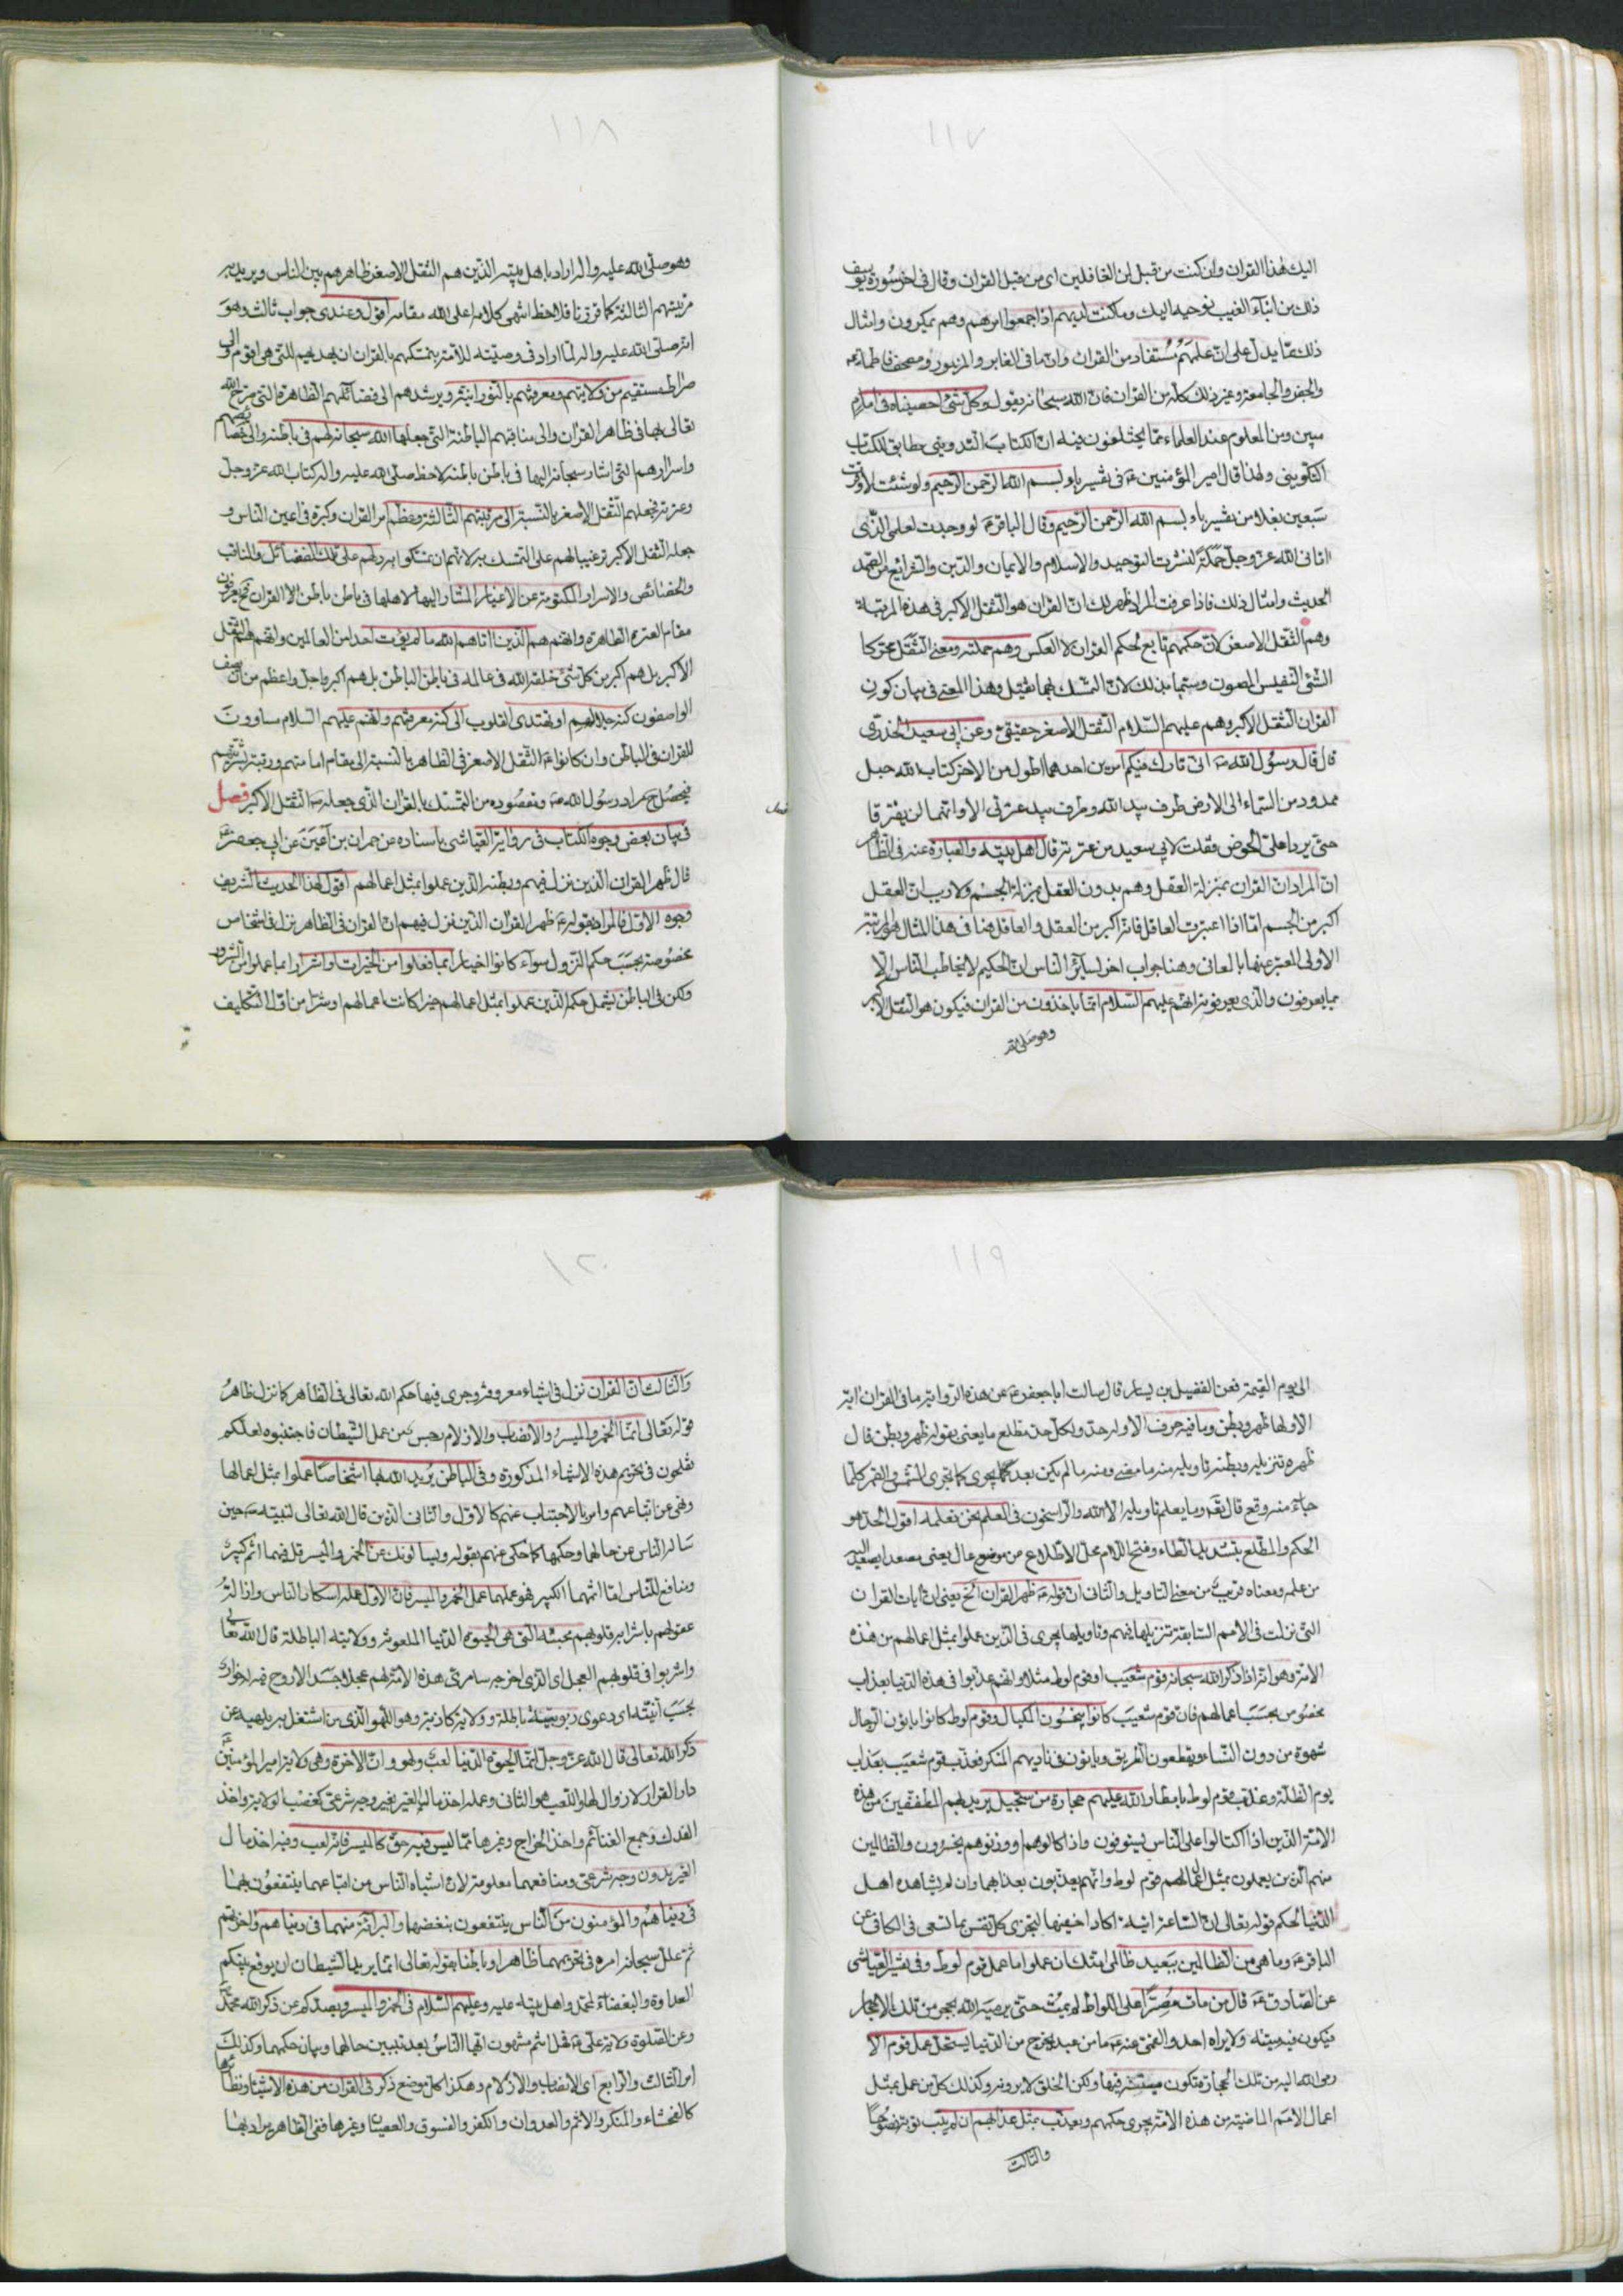 ١١٧
اليك هذا القران وان كنت من قبله لمن الغافلين اى من قبل القران وقال فى اخر سورة يوسف
ذلك من انباء الغيب نوحيه اليك وما كنت لديهم اذ اجمعوا امرهم وهم يمكرون وامثال
ذلك مما يدل على ان علمهم مستفاد من القران وان ما فى الغابر والمزبور ومصحف فاطمة ع
والجفر والجامعة وغير ذلك كله من القران فان الله سبحانه يقول وكل شئ احصيناه فى امام
مبين ومن المعلوم عند العلماء مما لا يختلفون فيه ان الكتاب التدوينى مطابق للكتاب
التكوينى ولهذا قال امير المؤمنين ع فى تفسير باء بسم الله الرحمن الرحيم ولو شئت لاوقرت
سبعين بغلا من تفسير باء بسم الله الرحمن الرحيم وقال الباقر ع لو وجدت لعلمى الذى
اتانى الله عز وجل حملة لنشرت التوحيد والاسلام والايمان والدين والشرائع من الصمد
الحديث وامثال ذلك فاذا عرفت المراد ظهر لك ان القران هو الثقل الاكبر فى هذه المرتبة
وهم الثقل الاصغر لان حكمهم تابع لحكم القران لا العكس وهم حملته ومعنى الثقل محركا
الشئ النفيس المصون وسميا بذلك لان التمسك بهما ثقيل وهذا المعنى فى بيان كون
القران الثقل الاكبر وهم عليهم السلام الثقل الاصغر حقيقى وعن ابى سعيد الخدرى
قال قال رسول الله ص انى تارك فيكم امرين احدهما اطول من الاخر كتاب الله حبل
ممدود من السماء الى الارض طرف بيد الله وطرف بيد عترتى الا وانهما لن يفترقا
حتى يردا على الحوض فقلت لابى سعيد من عترته قال اهل بيته والعبارة عنه فى الظاهر
ان المراد ان القران بمنزلة العقل وهم بدون العقل بمنزلة الجسم ولا ريب ان العقل
اكبر من الجسم اما اذا اعتبرت العاقل فانه اكبر من العقل والعاقل هنا فى هذا المثال هو المرتبة
الاولى المعبر عنها بالمعانى وهنا جواب اخر لسائر الناس ان الحكيم لا يخاطب الناس الا
بما يعرفون والذى يعرفونه انهم عليهم السلام انما ياخذون من القران فيكون هو الثقل الاكبر
وهو صلى الله
١١٨
وهو صلى الله عليه واله اراد باهل بيته الذين هم الثقل الاصغر ظاهرهم بين الناس ويريد به
مرتبتهم الثالثة كما قررنا فلاحظ انتهى كلامه اعلى الله مقامه اقول وعندى جواب ثالث وهو
انه صلى الله عليه واله لما اراد فى وصيته للامة بتمسكهم بالقران ان يهديهم للتى هى اقوم والى
صراط مستقيم من ولايتهم ومعرفتهم بالنورانية ويرشدهم الى فضائلهم الظاهرة التى مدح الله
تعالى بها فى ظاهر القران والى مناقبهم الباطنة التى جعلها الله سبحانه لهم فى باطنه والى خصائصهم
واسرارهم التى اشار سبحانه اليها فى باطن باطنه لاحظ صلى الله عليه واله كتاب الله عز وجل
وعترته فجعلهم الثقل الاصغر بالنسبة الى مرتبتهم الثالثة وعظم امر القران وكبره فى اعين الناس و
جعله الثقل الاكبر ترغيبا لهم على التمسك به لانهم ان تمسكوا به دلهم على تلك الفضائل والمناقب
والخصائص والاسرار المكتومة عن الاغيار المشار اليها لاهلها فى باطن باطن الا القران فح يعرفون
مقام العترة الطاهرة وانهم هم الذين اتاهم الله ما لم يؤت احدا من العالمين وانهم هم الثقل
الاكبر بل هم اكبر من كل شئ خلقه الله فى عالمه فى باطن الباطن بل هم اكبر واجل واعظم من ان يصف
الواصفون كنه جلالهم او تهتدى القلوب الى كنه معرفتهم وانهم عليهم السلام ساووت
للقران فى الباطن وان كانوا ع الثقل الاصغر فى الظاهر بالنسبة الى مقام امامتهم ورتبة بشريتهم
فيحصل ح مراد رسول الله ص ومقصوده من التمسك بالقران الذى جعله ص الثقل الاكبر فصل
فى بيان بعض وجوه الكتاب فى رواية العياشى باسناده عن حمران بن اعين عن ابى جعفر ع
قال ظهر القران الذين نزل فيهم وبطنه الذين عملوا بمثل اعمالهم اقول لهذا الحديث الشريف
وجوه الاول فالمراد بقوله ع ظهر القران الذين نزل فيهم ان القران فى الظاهر نزل فى اشخاص
مخصوصة بحسب حكم النزول سواء كانوا اخيارا بما فعلوا من الخيرات او اشرارا بما عملوا من الشرور
ولكن فى الباطن يشمل حكم الذين عملوا بمثل اعمالهم خيرا كانت اعمالهم او شرا من اول التكليف
فصل
١١٩
الى يوم القيمة فعن الفضيل بن يسار قال سالت ابا جعفر ع عن هذه الرواية ما فى القران اية
الا ولها ظهر وبطن وما فيه حرف الا وله حد ولكل حد مطلع ما يعنى بقوله ظهر وبطن قال
ظهره تنزيله وبطنه تاويله منه ما مضى ومنه ما لم يكن بعد يجرى كما تجرى الشمس والقمر كلما
جاء منه وقع قال تع وما يعلم تاويله الا الله والراسخون فى العلم نحن نعلمه اقول الحد هو
الحكم والمطلع بتشديد الطاء وفتح اللام محل الاطلاع من موضع عال يعنى مصعد ايصعد اليه
من علمه ومعناه قريب من معنى التاويل والثانى ان قوله ع ظهر القران الخ يعنى ان ايات القران
التى نزلت فى الامم السابقة تنزيلها فيهم وتاويلها يجرى فى الذين عملوا بمثل اعمالهم من هذه
الامة وهو انه اذا ذكر الله سبحانه قوم شعيب او قوم لوط مثلا وانهم عذبوا فى هذه الدنيا بعذاب
مخصوص بحسب اعمالهم فان قوم شعيب كانوا يبخسون المكيال وقوم لوط كانوا ياتون الرجال
شهوة من دون النساء ويقطعون الطريق وياتون فى ناديهم المنكر فعذب قوم شعيب بعذاب
يوم الظلة وعذب قوم لوط بامطار الله عليهم حجارة من سجيل يريد بهم المطففين من هذه
الامة الذين اذا اكتالوا على الناس يستوفون واذا كالوهم او وزنوهم يخسرون والظالين
منهم الذين يعملون بمثل اعمالهم قوم لوط وانهم يعذبون بعذابهما وان لم يشاهده اهل
الدنيا لحكم قوله تعالى ان الساعة اتية اكاد اخفيها لتجزى كل نفس بما تسعى فى الكافى عن
الباقر ع وما هى من الظالمين ببعيد ظالمى امتك ان عملوا ما عمل قوم لوط وفى تفسير العياشى
عن الصادق ع قال من مات مصرا على اللواط لم يمت حتى يرميه الله بحجر من تلك الاحجار
فيكون فيه ميتته ولا يراه احد والقمى عنه ع ما من عبد يخرج من الدنيا يستحل عمل قوم الا
رمى الله اليه من تلك الحجارة تكون منيته فيها ولكن الخلق لا يرونه وكذلك كل من عمل بمثل
اعمال الامم الماضية من هذه الامة يجرى حكمهم ويعذب بمثل عذابهم ان لم يتب توبة نصوحا
والثالث
١٢٠
والثالث ان القران نزل فى اشياء معروفة وجرى فيها حكم الله تعالى فى الظاهر كما نزل ظاهر
قوله تعالى انما الخمر والميسر والانصاب والازلام رجس من عمل الشيطان فاجتنبوه لعلكم
تفلحون فى تحريم هذه الاشياء المذكورة وفى الباطن يريد الله بها اشخاصا عملوا بمثل اعمالها
ونهى عن اتباعهم وامر بالاجتناب عنهم كالاول والثانى الذين قال الله تعالى لنبيه ص حين
سئاله الناس عن حالها وحكمها كما حكى عنهم بقوله ويسالونك عن الخمر والميسر قل فيهما اثم كبير
ومنافع للناس اما اثمهما الكبير فهو عملهما عمل الخمر والميسر فان الاول عمله اسكار الناس وازالة
عقولهم باشراب قلوبهم محبته التى هى الحيوة الدنيا الملعونة وولايته الباطلة قال الله تعالى
واشربوا فى قلوبهم العجل اى الذى اخرجه سامرى هذه الامة لهم عجلا جسدا لا روح فيه له خوار
بحسب انيته اى دعوى ربوبيته باطلة وولاية كاذبة وهو اللهو الذى من اشتغل به يلهيه عن
ذكر الله تعالى قال الله عز وجل انما الحيوة الدنيا لعب ولهو وان الاخرة وهى ولاية امير المؤمنين ع
دار القرار لا زوال لها واللعب هو الثانى وعمله اخذ مال الغير بغير وجه شرعى كغصب الولاية واخذ
الفدك وجمع الغنائم واخذ الخراج وغيرها مما ليس فيه حق كالميسر فانه لعب وفيه اخذ مال
الغير بدون وجه شرعى ومنافعهما معلومة لان اشباه الناس من اتباعهما ينتفعون بهما
فى دنياهم والمؤمنون من الناس ينتفعون ببغضهما والبرائة منهما فى دنياهم واخرتهم
ثم علل سبحانه امره فى تحريمهما ظاهرا وباطنا بقوله تعالى انما يريد الشيطان ان يوقع بينكم
العداوة والبغضاء لمحمد واهل بيته عليه وعليهم السلام فى الخمر والميسر ويصدكم عن ذكر الله محمد
وعن الصلوة ولاية على ع فهل انتم منتهون ايها الناس بعد تبيين حالها وبيان حكمهما وكذلك
امر الثالث والرابع اى الانصاب والازلام وهكذا كل موضع ذكر فى القران من هذه الاشياء ونظائرها
كالفحشاء والمنكر والاثم والعدوان والكفر والفسوق والعصيان وغيرها ففى الظاهر يراد بها